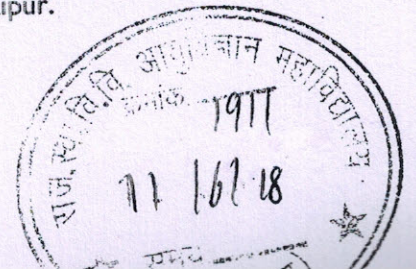 ipur.
राज. स्वा. वि.वि. आयुर्विज्ञान महाविद्यालय
क्रमांक
1911
11 / 6 / 18
समय